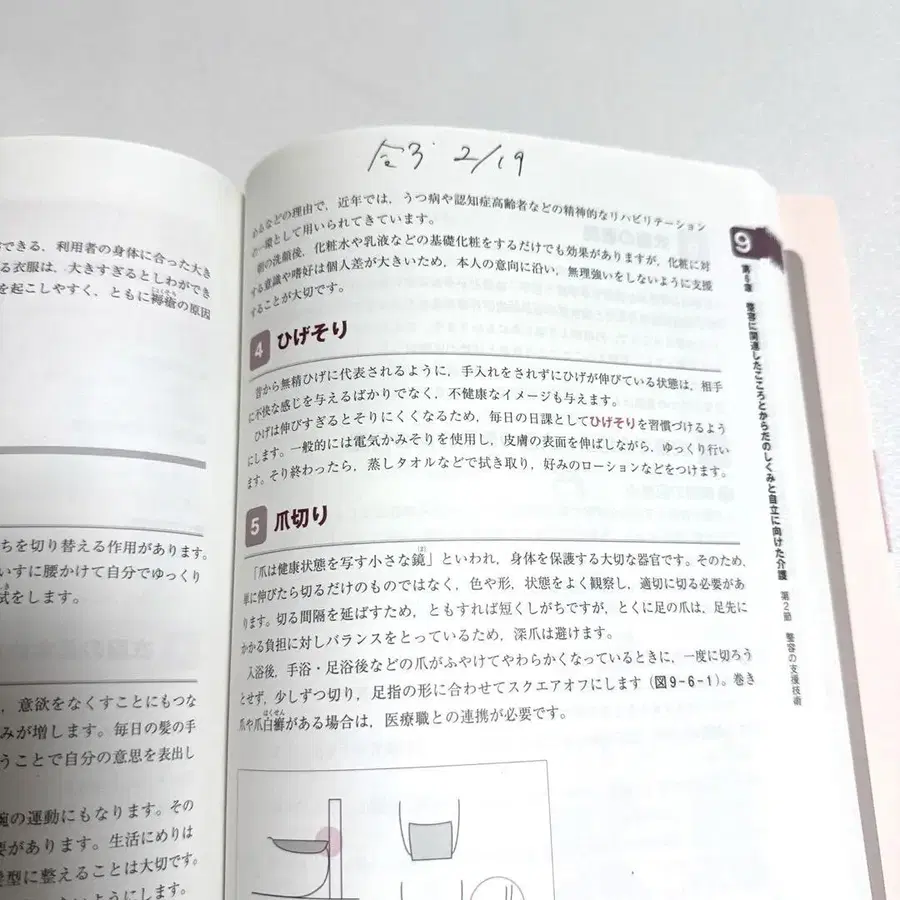 できる，利用者の身体に合った大き
る衣服は，大きすぎるとしわができ
を起こしやすく，ともに褥瘡の原因
じょくそう
ちを切り替える作用があります。
いすに腰かけて自分でゆっくり
拭をします。
，意欲をなくすことにもつな
みが増します。毎日の髪の手
うことで自分の意思を表出し
腕の運動にもなります。その
要があります。生活にめりは
髪型に整えることは大切です。
ないようにします。
2/19
めるなどの理由で，近年では，うつ病や認知症高齢者などの精神的なリハビリテーション
の一環として用いられてきています。
朝の洗顔後，化粧水や乳液などの基礎化粧をするだけでも効果がありますが，化粧に対
する意識や嗜好は個人差が大きいため，本人の意向に沿い，無理強いをしないように支援
することが大切です。
4 ひげそり
昔から無精ひげに代表されるように，手入れをされずにひげが伸びている状態は，相手
に不快な感じを与えるばかりでなく，不健康なイメージも与えます。
ひげは伸びすぎるとそりにくくなるため，毎日の日課としてひげそりを習慣づけるよう
にします。一般的には電気かみそりを使用し，皮膚の表面を伸ばしながら，ゆっくり行い
ます。そり終わったら，蒸しタオルなどで拭き取り，好みのローションなどをつけます。
5 爪切り
「爪は健康状態を写す小さな鏡」といわれ，身体を保護する大切な器官です。そのため，
単に伸びたら切るだけのものではなく，色や形，状態をよく観察し，適切に切る必要があ
ります。切る間隔を延ばすため，ともすれば短くしがちですが，とくに足の爪は，足先に
かかる負担に対しバランスをとっているため，深爪は避けます。
入浴後，手浴・足浴後などの爪がふやけてやわらかくなっているときに，一度に切ろう
とせず，少しずつ切り，足指の形に合わせてスクエアオフにします（図9-6-1）。巻き
爪や爪白癬がある場合は，医療職との連携が必要です。
はくせん
9
第6章 整容に関連したこころとからだのしくみと自立に向けた介護 第2節 整容の支援技術